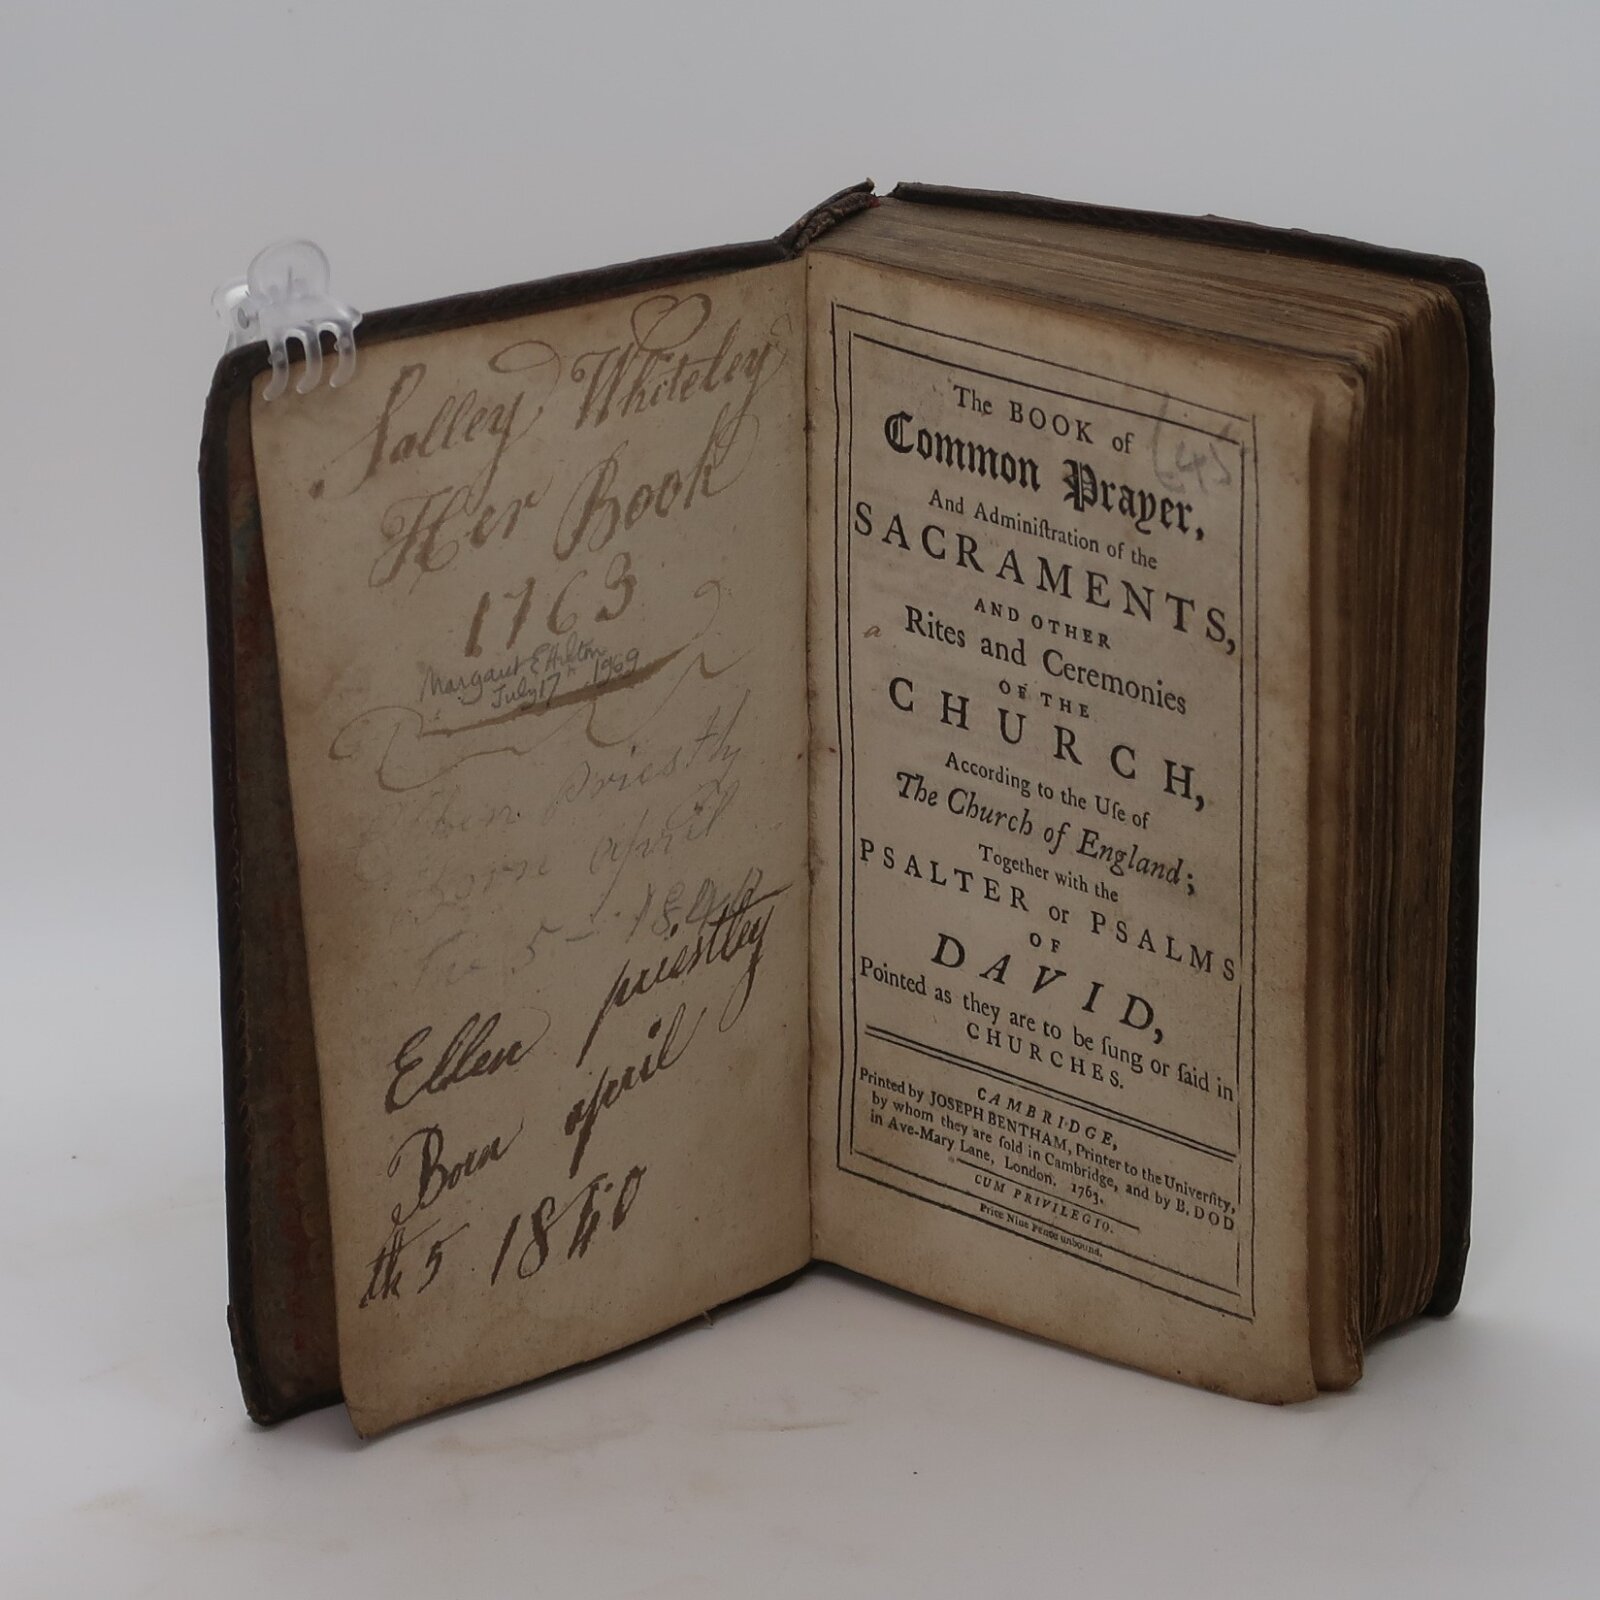 Salley Whiteley
Her Book
1763
Margaret E Hilton
July 17th 1969
Ellen Priestly
Born april
The 5 - 1840
Ellen priestley
Born april
th 5 1840
The BOOK of
Common Prayer,
£45
And Adminiſtration of the
SACRAMENTS,
AND OTHER
a
Rites and Ceremonies
OF THE
CHURCH,
According to the Uſe of
The Church of England;
Together with the
PSALTER or PSALMS
OF
DAVID,
Pointed as they are to be ſung or ſaid in
CHURCHES.
CAMBRIDGE,
Printed by JOSEPH BENTHAM, Printer to the Univerſity,
by whom they are ſold in Cambridge, and by B. DOD
in Ave-Mary Lane, London. 1763.
CUM PRIVILEGIO.
Price Nine Pence unbound.